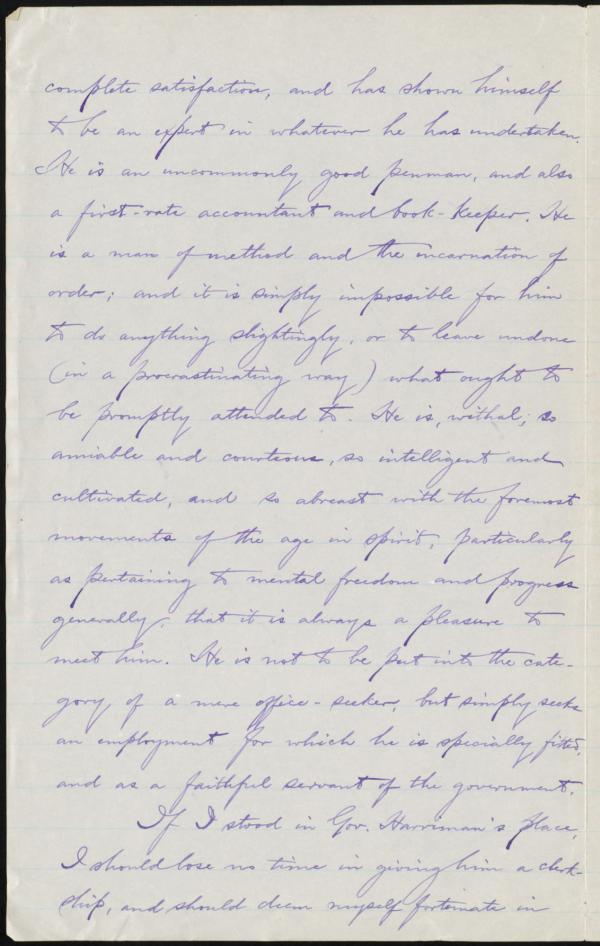 complete satisfaction, and has shown himself
to be an expert in whatever he has undertaken.
He is an uncommonly good penman, and also
a first-rate accountant and book-keeper. He
is a man of method and the incarnation of
order; and it is simply impossible for him
to do anything slightingly, or to leave undone
(in a procrastinating way) what ought to
be promptly attended to. He is, withal, so
amiable and courteous, so intelligent and
cultivated, and so abreast with the foremost
movements of the age in spirit, particularly
as pertaining to mental freedom and progress
generally, that it is always a pleasure to
meet him. He is not to be put into the cate-
gory of a mere office-seeker, but simply seeks
an employment for which he is specially fitted,
and as a faithful servant of the government.
If I stood in Gov. Harriman's place,
I should lose no time in giving him a clerk-
ship, and should deem myself fortunate in